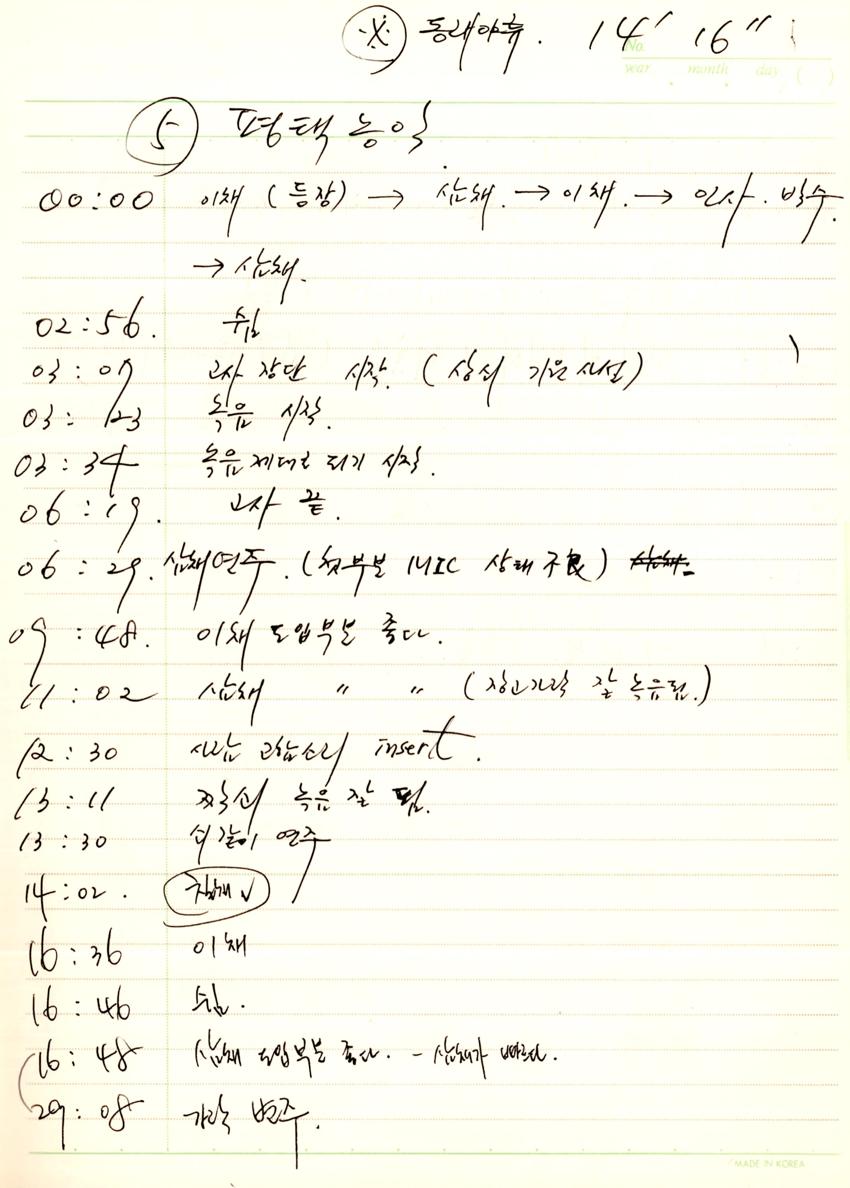 ※ 동래야류. 14′ 16″
No.
year month day ( )
⑤ 평택농악
00:00 이채 (등장) → 삼채. → 이채. → 인사. 박수.
→ 삼채.
02:56. 쉼
03:07 고사 장단 시작. (상쇠 기원 사설)
03:23 녹음 시작.
03:34 녹음 제대로 되기 시작.
06:19. 고사 끝.
06:29. 삼채연주. (첫부분 MIC 상태 不良) 삼채.
09:48. 이채 도입부분 좋다.
11:02 삼채 〃 〃 (장고가락 잘 녹음됨.)
12:30 사람 고함소리 insert.
13:11 짝쇠 녹음 잘 됨.
13:30 쇠 같이 연주
14:02. 삼채 √
16:36 이채
16:46 쉼.
16:48 삼채 도입부분 좋다. - 삼채가 빠르다.
29:08 가락 변주.
MADE IN KOREA